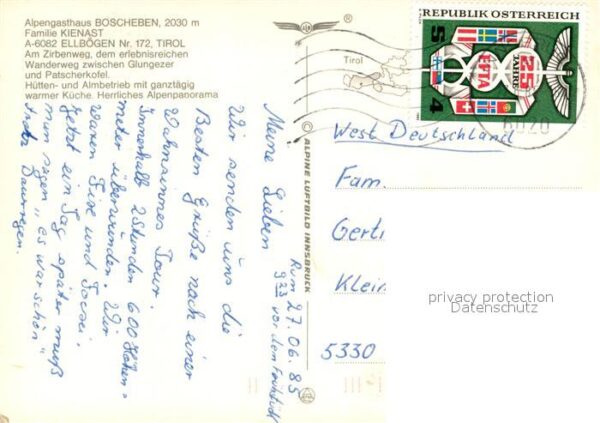 Alpengasthaus BOSCHEBEN, 2030 m
Familie KIENAST
A-6082 ELLBÖGEN Nr. 172, TIROL
Am Zirbenweg, dem erlebnisreichen
Wanderweg zwischen Glungezer
und Patscherkofel.
Hütten- und Almbetrieb mit ganztägig
warmer Küche. Herrliches Alpenpanorama
Rum 27.06.85
9 23 vor dem Frühstück
Meine Lieben
Wir senden uns die
Besten Grüße nach einer
Wahnsinnes Tour.
Innerhalb 2 Stunden 600 Höhen=
meter überwunden. Wir
waren Fix und
Jetzt ein Tag später muß
man sagen „es war schön"
Trotz Dauerregen.
© ALPINE LUFTBILD INNSBRUCK
Tirol
REPUBLIK ÖSTERREICH
S 4
25
JAHRE
EFTA
6020
West Deutschland
Fam.
Gerti
Klein
5330
privacy protection
Datenschutz